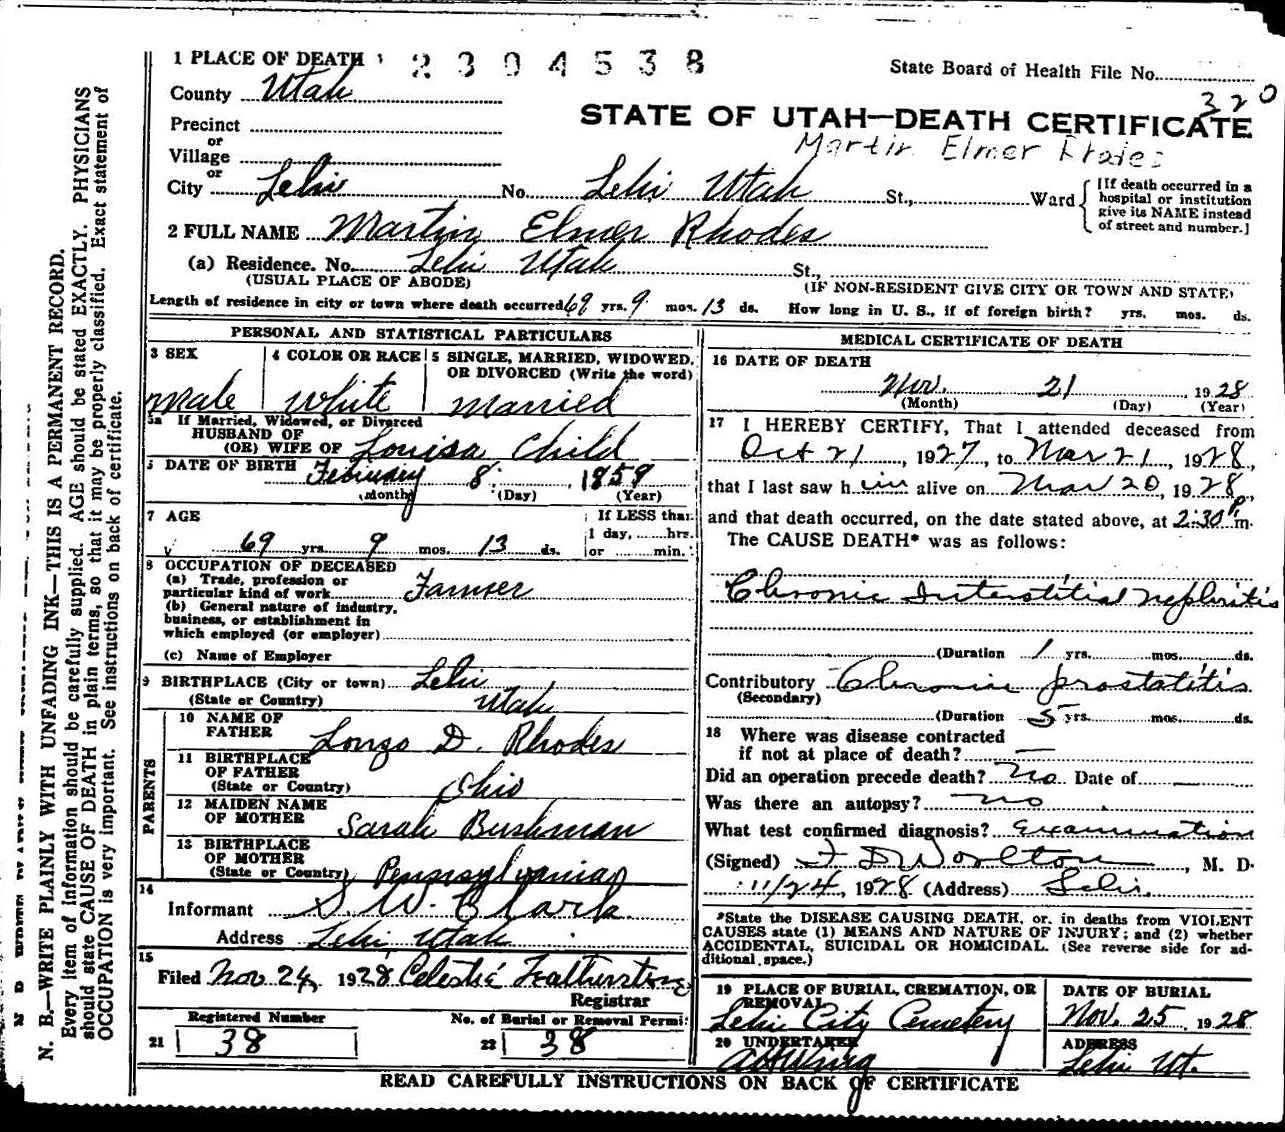 1 PLACE OF DEATH 2304538
State Board of Health File No.
County Utah
320
STATE OF UTAH—DEATH CERTIFICATE
Precinct
or
Village
Martin Elmer Rhodes
or
City Lehi No. Lehi Utah St., Ward
[If death occurred in a
hospital or institution
give its NAME instead
of street and number.]
2 FULL NAME Martin Elmer Rhodes
(a) Residence. No. Lehi Utah St.,
(USUAL PLACE OF ABODE) (IF NON-RESIDENT GIVE CITY OR TOWN AND STATE)
Length of residence in city or town where death occurred 69 yrs. 9 mos. 13 ds. How long in U. S., if of foreign birth? yrs. mos. ds.
PERSONAL AND STATISTICAL PARTICULARS
3 SEX 4 COLOR OR RACE 5 SINGLE, MARRIED, WIDOWED,
OR DIVORCED (Write the word)
Male White Married
5a If Married, Widowed, or Divorced
HUSBAND OF
(OR) WIFE OF Louisa Child
DATE OF BIRTH February 8 1859
(Month) (Day) (Year)
7 AGE If LESS than
1 day, hrs.
69 yrs. 9 mos. 13 ds. or min.
8 OCCUPATION OF DECEASED
(a) Trade, profession or
particular kind of work Farmer
(b) General nature of industry,
business, or establishment in
which employed (or employer)
(c) Name of Employer
9 BIRTHPLACE (City or town) Lehi
(State or Country) Utah
PARENTS
10 NAME OF
FATHER Lonzo D. Rhodes
11 BIRTHPLACE
OF FATHER
(State or Country) Ohio
12 MAIDEN NAME
OF MOTHER Sarah Bushman
13 BIRTHPLACE
OF MOTHER
(State or Country) Pennsylvania
14
Informant S W. Clark
Address Lehi Utah
15
Filed Nov 24, 1928 Celestie Featherstone
Registrar
Registered Number No. of Burial or Removal Permit
21 38 22 38
MEDICAL CERTIFICATE OF DEATH
16 DATE OF DEATH
Nov. 21, 1928
(Month) (Day) (Year)
17 I HEREBY CERTIFY, That I attended deceased from
Oct 21, 1927, to Nov 21, 1928,
that I last saw him alive on Nov 20, 1928,
and that death occurred, on the date stated above, at 2:30 p m.
The CAUSE DEATH* was as follows:
Chronic Interstitial Nephritis
(Duration 1 yrs. mos. ds.
Contributory Chronic prostatitis
(Secondary)
(Duration 5 yrs. mos. ds.
18 Where was disease contracted
if not at place of death? —
Did an operation precede death? No Date of —
Was there an autopsy? no
What test confirmed diagnosis? Examination
(Signed) F D Worlton, M. D.
11/24, 1928 (Address) Lehi.
*State the DISEASE CAUSING DEATH, or, in deaths from VIOLENT
CAUSES state (1) MEANS AND NATURE OF INJURY; and (2) whether
ACCIDENTAL, SUICIDAL OR HOMICIDAL. (See reverse side for ad-
ditional space.)
19 PLACE OF BURIAL, CREMATION, OR
REMOVAL
Lehi City Cemetery
DATE OF BURIAL
Nov. 25, 1928
20 UNDERTAKER
ADDRESS
Lehi Ut.
READ CAREFULLY INSTRUCTIONS ON BACK OF CERTIFICATE
N. B.—WRITE PLAINLY WITH UNFADING INK—THIS IS A PERMANENT RECORD.
Every item of information should be carefully supplied. AGE should be stated EXACTLY. PHYSICIANS
should state CAUSE OF DEATH in plain terms, so that it may be properly classified. Exact statement of
OCCUPATION is very important. See instructions on back of certificate.